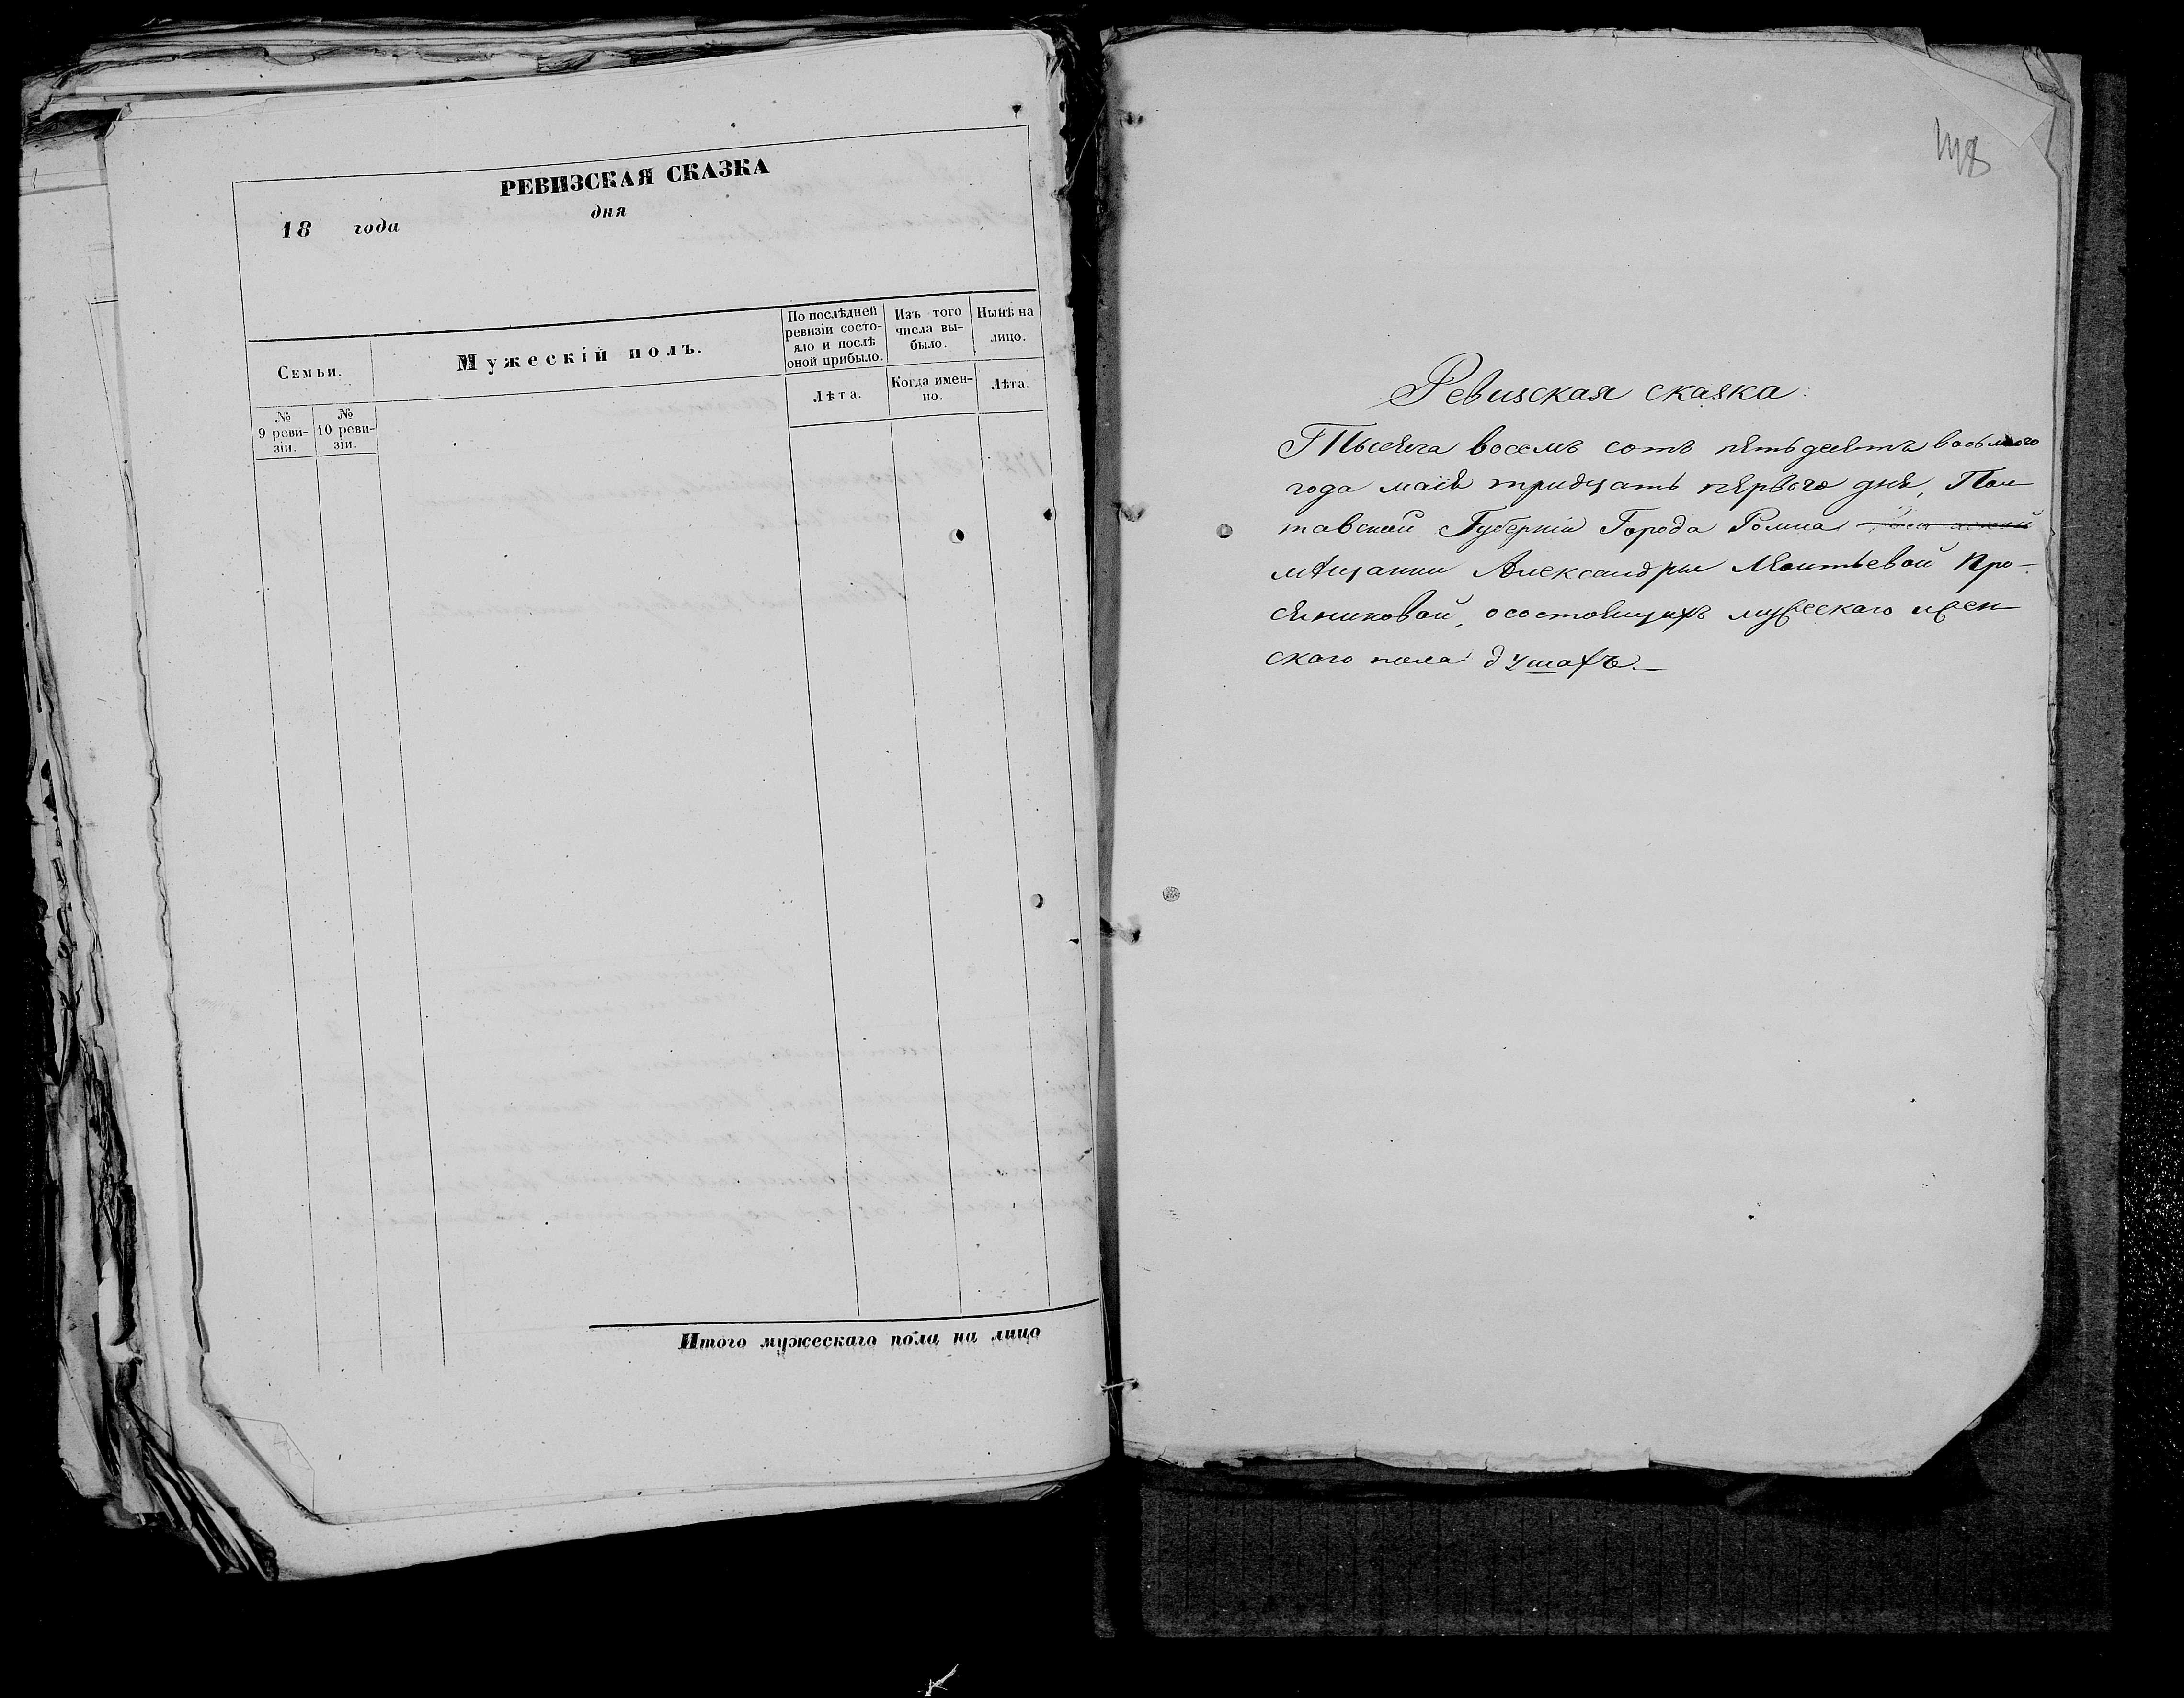 РЕВИЗСКАЯ СКАЗКА
18 года дня
Семьи.
Мужескій полъ.
По послѣдней ревизіи состо-яло и послѣ оной прибыло.
Изъ того числа вы-было.
Нынѣ на лицо.
Лѣта.
Когда имен-но.
Лѣта.
№ 9 реви-зіи.
№ 10 реви-зіи.
Итого мужескаго пола на лицо
Ревизская сказка
Тысяча восемь сотъ пятьдесятъ восьмого
года маія тридцать перваго дня, Пол
тавской Губерніи Города Ромна
мѣщанки Александры Леонтьевой Про-
сяниковой, о состоящихъ мужескаго и жен
скаго пола душахъ.—